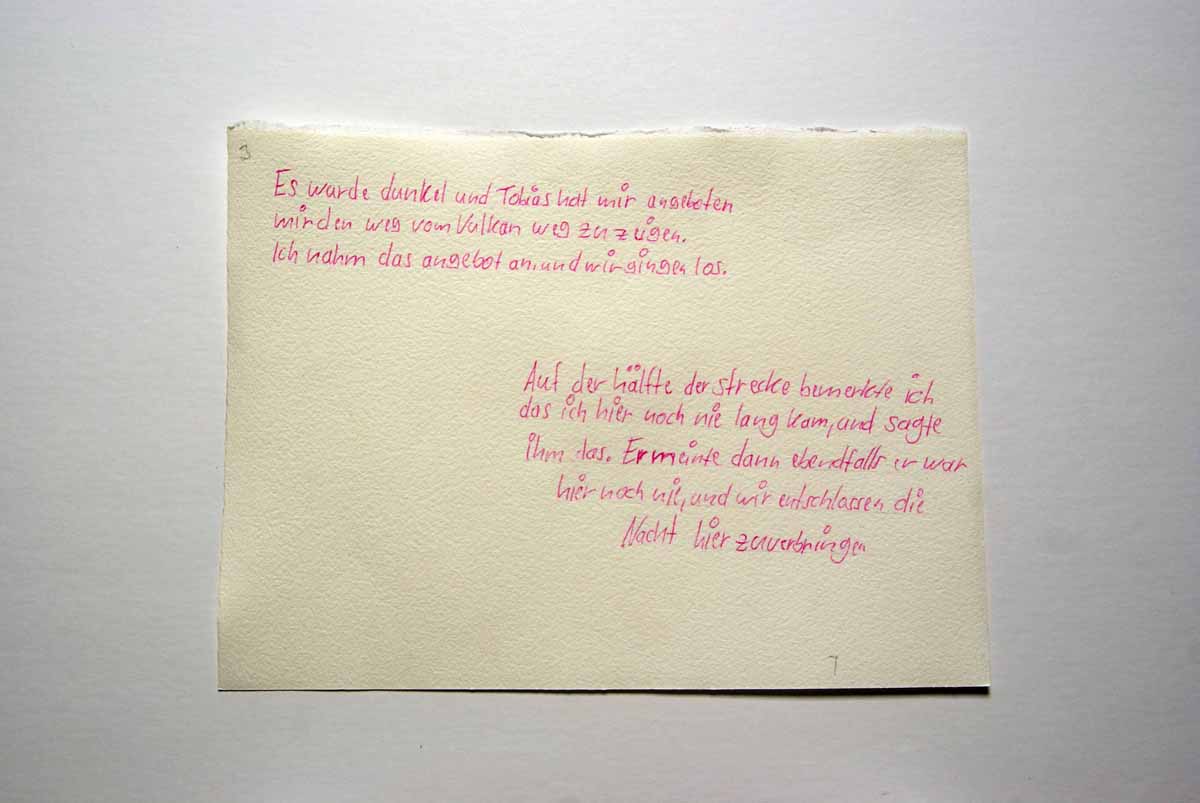 3
Es wurde dunkel und Tobias hat mir angeboten
mir den weg vom Vulkan weg zu zeigen.
Ich nahm das angebot an, und wir gingen los.
Auf der hälfte der strecke bemerkte ich
das ich hier noch nie lang kam, und sagte
ihm das. Er meinte dann ebendfalls er war
hier noch nie, und wir entschlassen die
Nacht hier zuverbringen
7